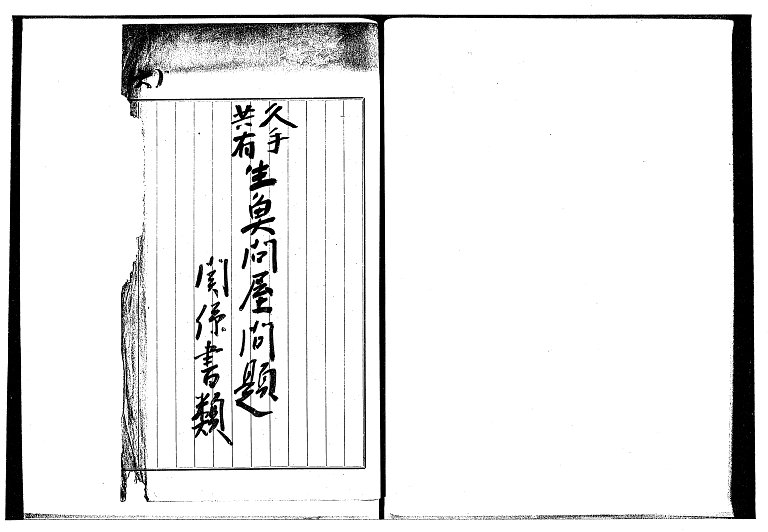 久手
共有
生魚問屋問題
関係書類